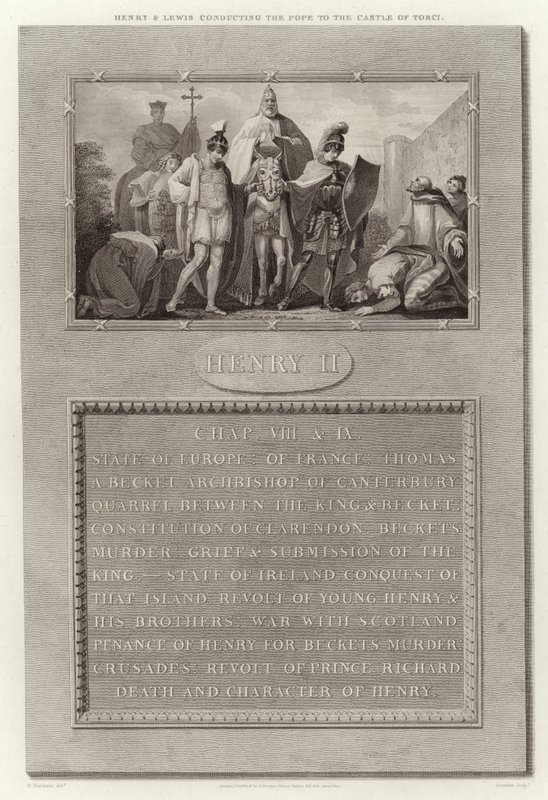 HENRY & LEWIS CONDUCTING THE POPE TO THE CASTLE OF TORCI.
HENRY II
CHAP. VIII & IX.
STATE OF EUROPE: OF FRANCE: THOMAS
A BECKET ARCHBISHOP OF CANTERBURY
QUARREL BETWEEN THE KING & BECKET:
CONSTITUTION OF CLARENDON: BECKETS
MURDER: GRIEF & SUBMISSION OF THE
KING.— STATE OF IRELAND: CONQUEST OF
THAT ISLAND: REVOLT OF YOUNG HENRY &
HIS BROTHERS: WAR WITH SCOTLAND:
PENANCE OF HENRY FOR BECKETS MURDER:
CRUSADES: REVOLT OF PRINCE RICHARD
DEATH AND CHARACTER OF HENRY.